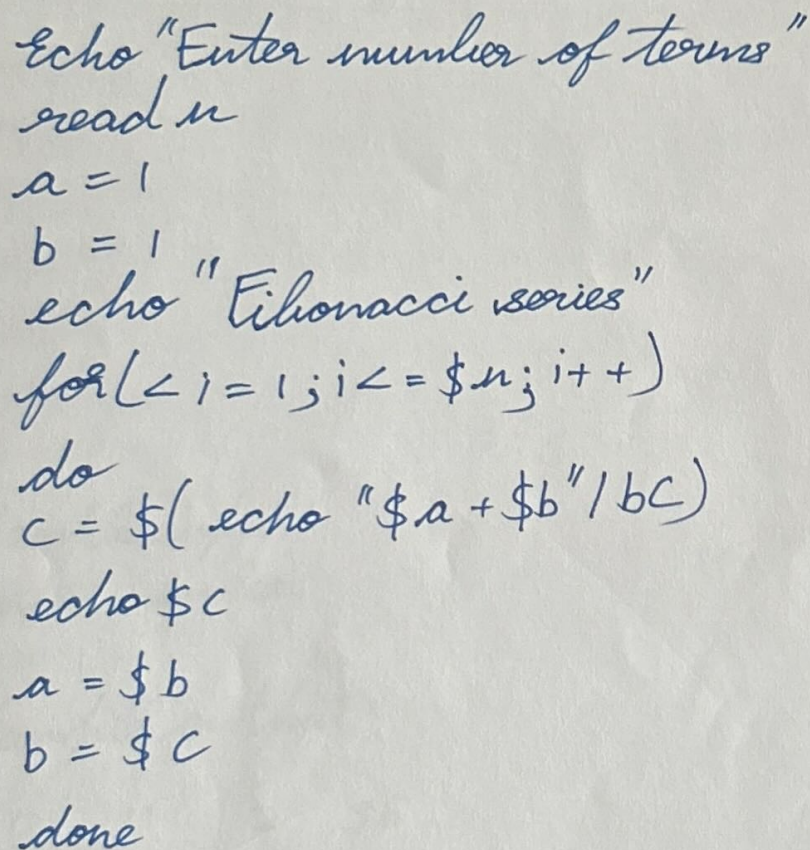 Echo "Enter number of terms"
read n
a = 1
b = 1
echo "Fibonacci series"
for(< i = 1; i <= $n; i++)
do
c = $( echo "$a + $b" / bc)
echo $c
a = $b
b = $c
done